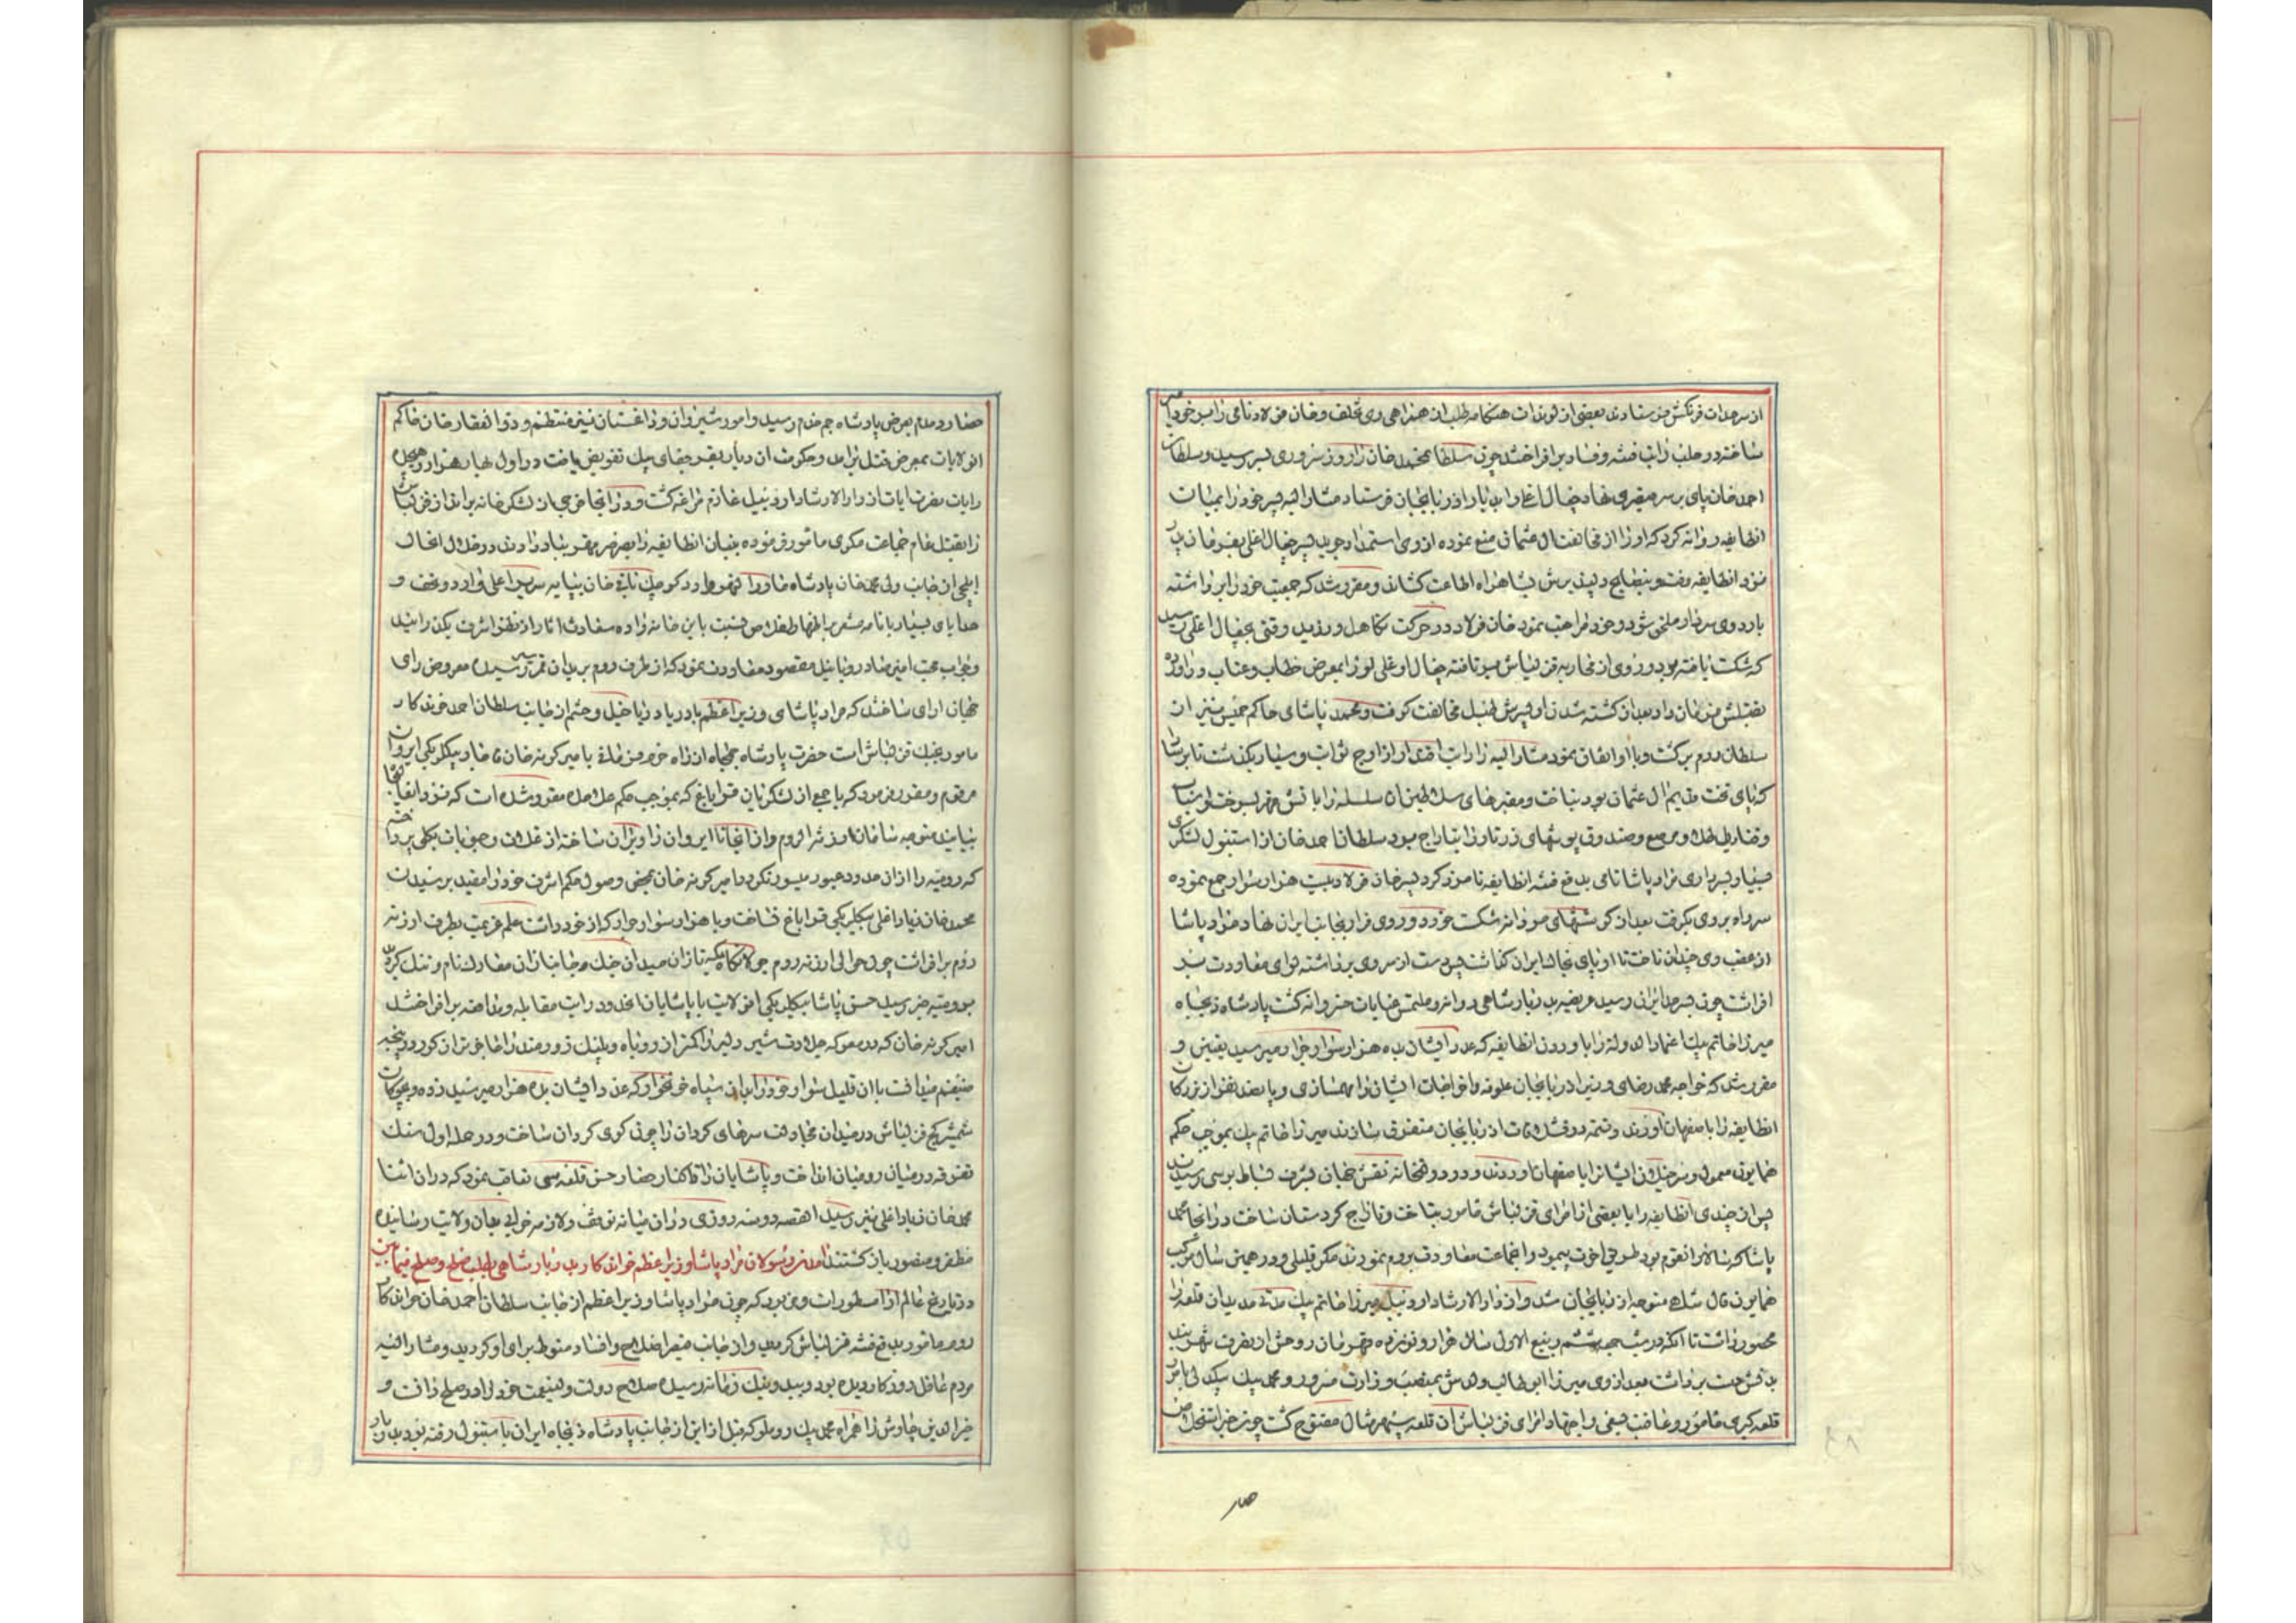 از سرحدات فرنگش فرستادند بعضی از لوندات هنگامه طلب از همراهی وی تخلف و خان فولاد نامی را میر خود
ساخته در حلب رایت فتنه و فساد برافراختند چون سلطان محمد خان را روز سروری بسر رسید و سلطان
احمد خان پای بر سریر قیصری نهاد جغال اغلی را بدیار اذربایجان فرستاد مشار الیه پسر خود را بمیان
انطایفه روانه کرد که او را از مخالفت ال عثمان منع نموده از وی استمداد جوید پسر جغال اغلی بفرمان پدر
نزد انطایفه رفت و بنصایح دلپذیرش بشاهراه اطاعت کشاند و مقرر شد که جمعیت خود را برداشته
باردوی سردار ملحق شود و خود مراجعت نمود خان فولاد در حرکت تکاهل ورزید وقتی بجغال اغلی رسید
که شکست یافته بود و روی از محاربه قزلباش برتافته جغال اوغلی او را بمعرض خطاب و عتاب دراورد
بقتلش فرمان داد بعد از کشته شدن او پسرش طبل مخالفت کوفت و محمد پاشای حاکم نیز از
سلطان روم برگشت و با او اتفاق نمود مشار الیه را رایت اقتدار از اوج ثوابت و سیار بگذشت تا برسا
که پای تخت قدیم ال عثمان بود بتاخت و مقبرهای سلاطین آن سلسله را باتش قهر بسوخت و اسباب
و قنادیل طلا و مرصع و صندوق پوشهای زرتار را بتاراج برد سلطان احمد خان از استنبول لشکری
بسیار بسرداری مراد پاشا نامی بدفع فتنه انطایفه نامزد کرد پسر خان فولاد بیست هزار سوار جمع نموده
سر راه بر وی بگرفت بعد از کوششهای مردانه شکست خورد و روی فرار بجانب ایران نهاد مراد پاشا
از عقب وی چندان تاخت تا او پای بخاک ایران گذاشت پس دست از سر وی برداشته لوای معاودت
افراشت چون بسرحد ایران رسید عریضه بدربار شاهی روانه و ملتمس عنایات خسروانه گشت پادشاه ذیجاه
میرزا حاتم بیک اعتماد الدوله را باوردن انطایفه که عدد ایشان به ده هزار سوار جرار میرسید تعیین و
مقرر شد که خواجه محمد رضای وزیر اذربایجان علوفه و اخراجات ایشان را مهمسازی و با بعضی نفر از بزرگان
انطایفه را باصفهان اورند و تتمه در قشلاقات اذربایجان متفرق سازند میرزا حاتم بیک بموجب حکم
همایون معمول و سرخیلان ایشانرا باصفهان اوردند و در دولتخانه نقش جهان بشرف بساط بوسی رسیدند
پس از چندی انطایفه را با بعضی از امرای قزلباش مامور بتاخت و تاراج کردستان ساخت در انجا محمد
پاشا که سالار انقوم بود طریق اخرت پیمود و انجماعت معاودت بروم نمودند مگر قلیلی و در همین سال موکب
همایون فال شاهی متوجه اذربایجان شد و از دار الارشاد اردبیل میرزا حاتم بیک مدتی مدید ان قلعه را
محصور داشت تا انکه در شب جمعه ششم ربیع الاول سال هزار و نوزده قهرمان روحش از تصرف شهربند
بدنش دست برداشت بعد از وی میرزا ابو طالب ولدش بمنصب وزارت سرور و محمد بیک بیکدلی بامر
قلعه گیری مامور و عاقبت بسعی و اجتهاد امرای قزلباش ان قلعه سپهر مثال مفتوح گشت چون خبر استخلاص
حصار
حصار دمدم بعرض پادشاه جم خدم رسید و امور شیروان و داغستان نیز منتظم و ذو الفقار خان حاکم
انولایات بمعرض قتل درامد و حکومت ان دیار بقرجقای بیک تفویض یافت در اول بهار هزار و نوزده
رایات نصرت ایات از دار الارشاد اردبیل عازم مراغه گشت و در انجا فرمود از لشکر خانه برانداز قزلباش
را بقتل عام جماعت مکری مامور فرموده بنیان انطایفه را بصرصر قهر بباد دادند در خلال انحال
ایلچی از جانب ولی محمد خان پادشاه ماورا النهر وارد گو چک نایره خان بپایه سریر اعلی وارد و تحف و
هدایای بسیار با نامه مشعر بر اظهار اخلاص نسبت باین خانه زاده سعادت اثار از نظر اشرف گذرانید
و بجواب محبت امیز صادر و با نیل مقصود معاودت نمود که از طرف روم بریدان قمر سیر رسیده معروض رای
جهان ارای ساختند که مراد پاشای وزیر اعظم با دریا دریا خیل و حشم از جانب سلطان احمد خوندکار
مامور بجنک قزلباش است حضرت پادشاه جمجاه از راه حزم فرمانی بامیر گونه خان قاجار بیگلربیگی ایروان
مرقوم و مقرر فرمود که با جمعی از لشکریان قراباغ که بموجب حکم علاحده مقرر شده است که نزد انجا
بیایند متوجه سامان ارزنة الروم و از انجا تا ایروان را ویران ساخته از غلات و حبوبات بکلی پرداخته
که رومیه را از ان حدود عبور میسور نگردد امیر گونه خان بمحض وصول حکم اشرف خود را مقید برسیدن
محمد خان زیاد اغلی بیگلربیگی قراباغ نساخت و با هزار سوار جرار که از خود داشت علم عزیمت بطرف ارزنه
روم برافراشت چون حوالی ارزنه روم جولانگاه یکه تازان میدان جنک و جانبازان معارک نام و ننک گردید
برومیه خبر رسید حسن پاشا بیگلربیگی انولایت با پاشایان انحدود رایت مقابله و مدافعه برافراختند
امیر گونه خان که در معرکه جلادت شیر دلیر را کمتر از روباه و پلنک زورمند را عاجزتر از گور در پنجه
ضیغم میدانست با ان قلیل سوار خود را بدان سپاه خونخوار که عدد ایشان بده هزار میرسید زده و بچوگان
شمشیر کج قزلباش در میدان مجادلت سرهای گردان را چون گوی گردان ساخت و در حمله اول سنک
تفرقه در میان رومیان انداخت و پاشایان را تا کنار حصار حسن قلعه سی تعاقب نمود که در ان اثنا
محمد خان زیاد اغلی نیز رسید القصه دو سه روزی در ان میانه توقف و لازمه خرابی بدان ولایت رسانیده
مظفر و منصور باز گشتند امدن رسولان مراد پاشا وزیر اعظم خواندکار بدربار شاهی بطلب صلح و صلح فیمابین
در تاریخ عالم ارا مسطور است و مزبور که چون مراد پاشا وزیر اعظم از جانب سلطان احمد خان خواندکار
روم مامور بدفع فتنه قزلباش گردید و از جانب قیصر اصلاح و افساد منوط برای او گردید و مشار الیه
مردم عاقل روزگار دیده بود و ببد و نیک زمانه رسیده صلاح دولت ولینعمت خود را در صلح دانست و
خیر الدین چاوش را همراه محمد بیک روملو که قبل از این از جانب پادشاه ذیجاه ایران باستنبول رفته بود بدربار